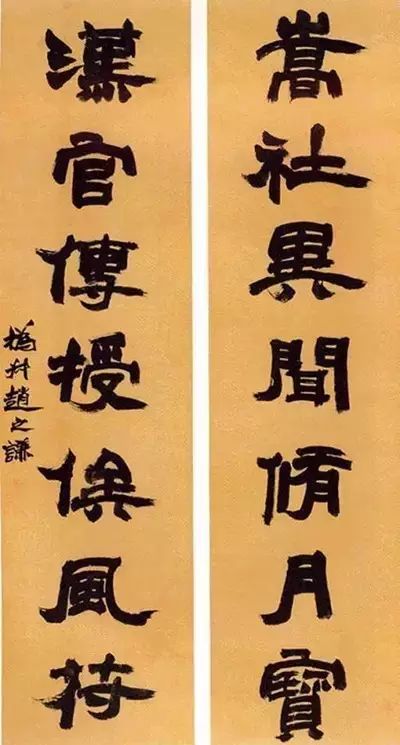 嵩社異聞脩月寶
漢官傳授俟風持
撝叔趙之謙